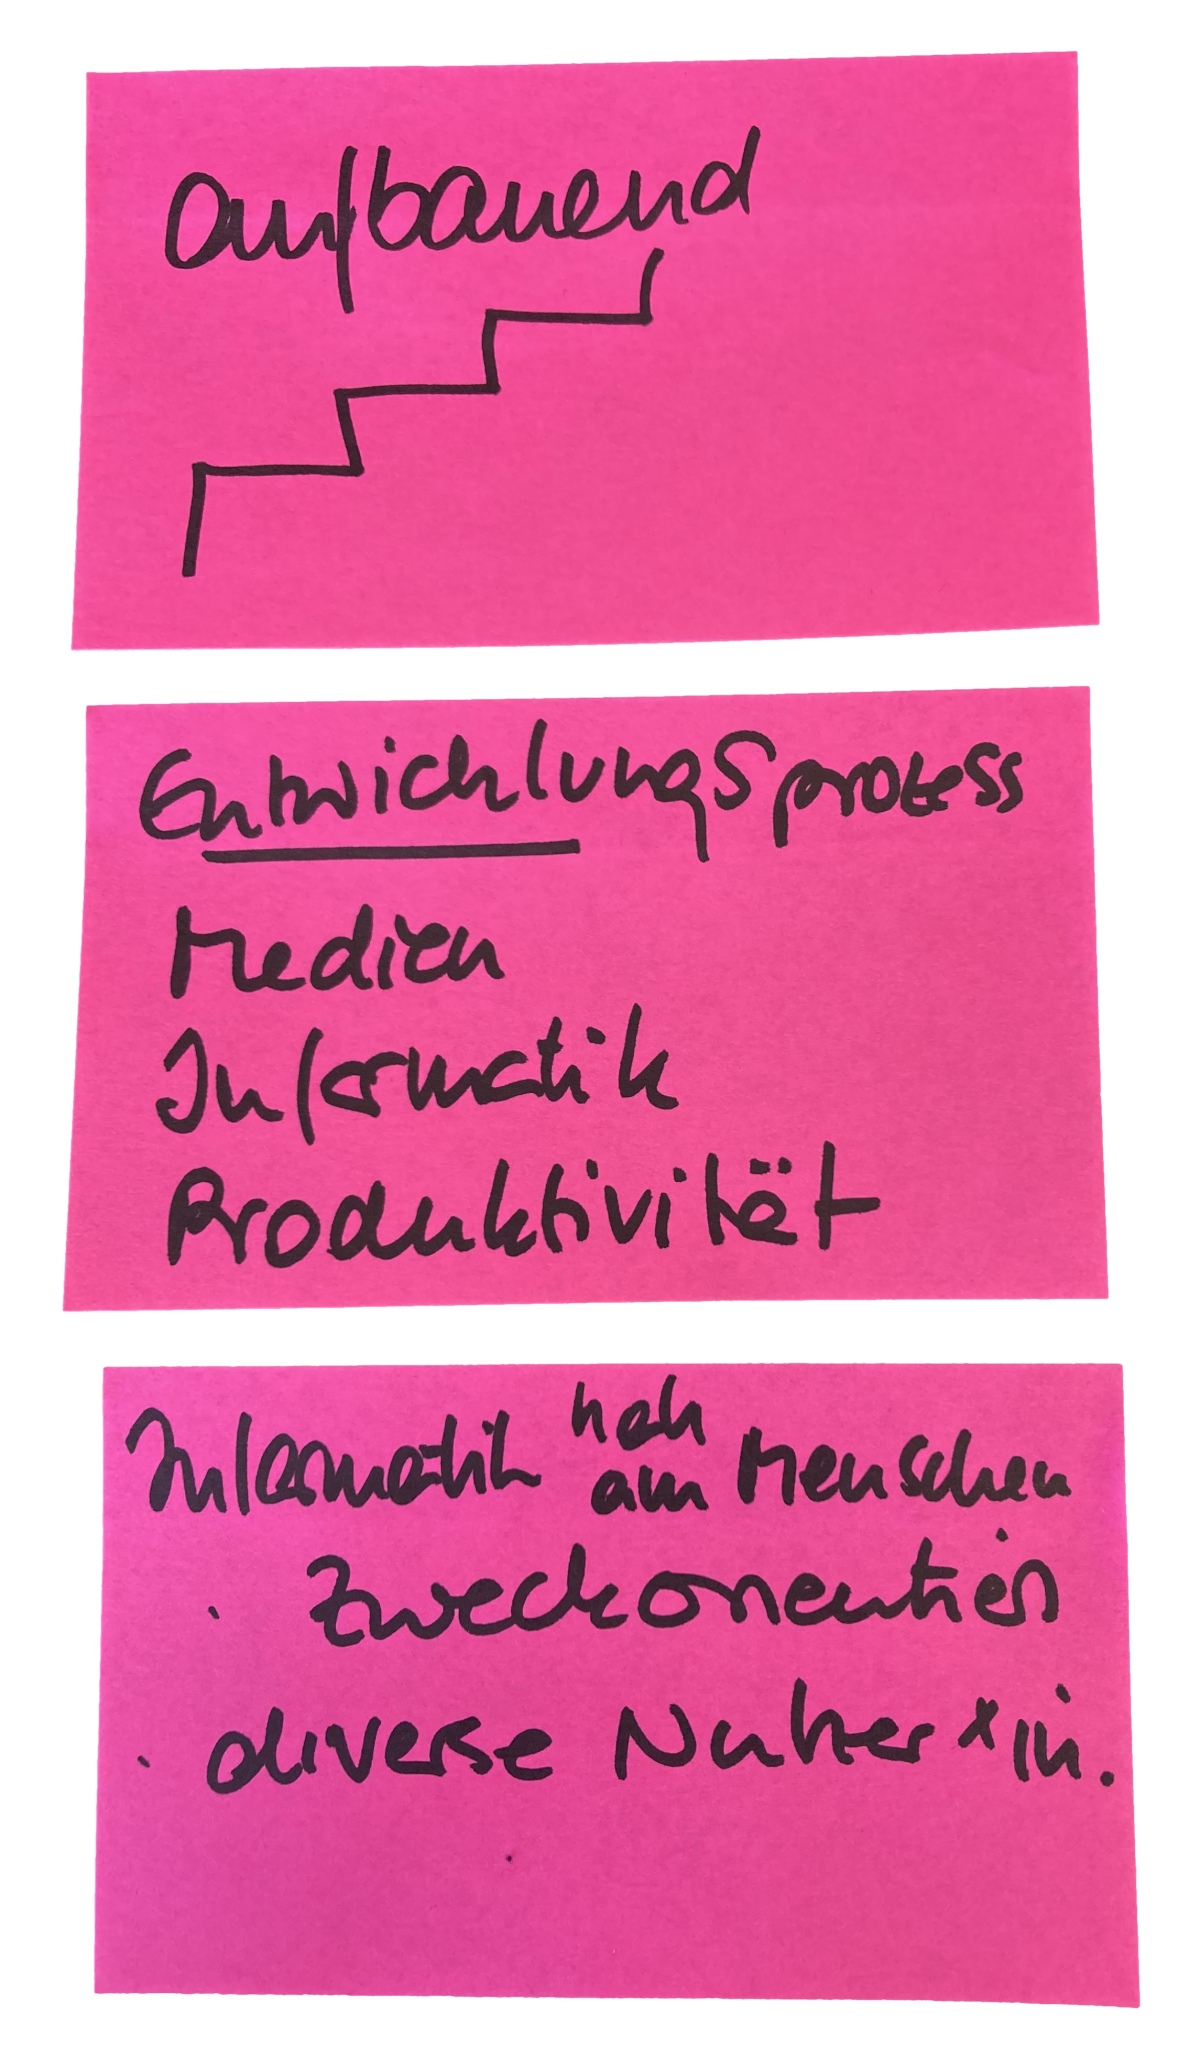 aufbauend
Entwicklungsprozess
Medien
Informatik
Produktivität
Informatik nah am Menschen
· Zweckorientiert
· diverse Nutzer*in.